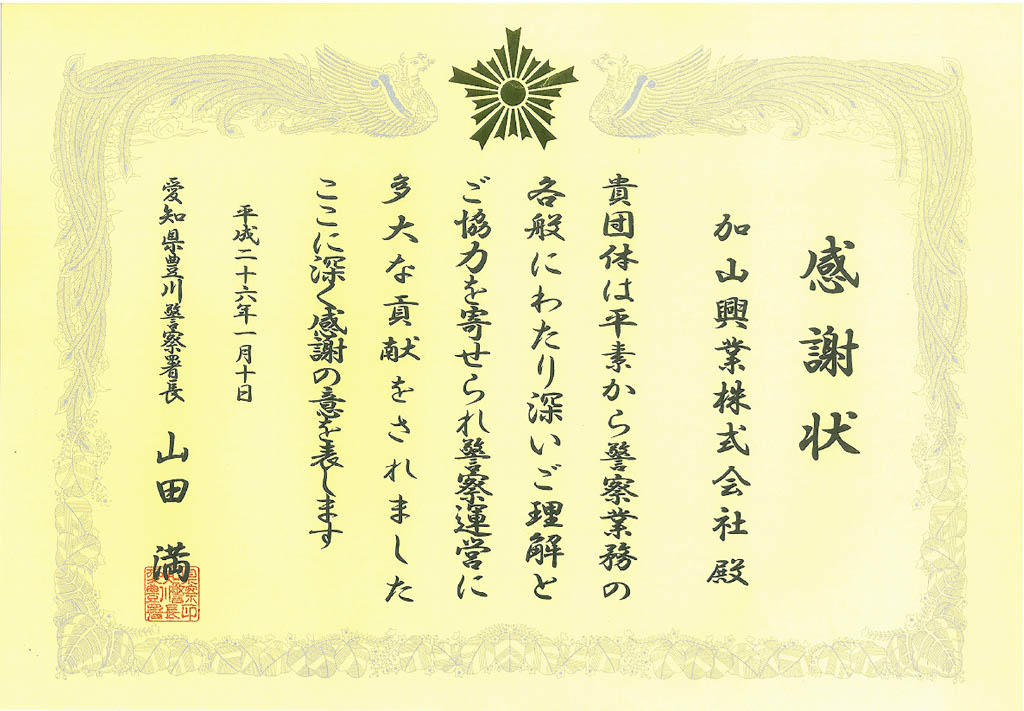 感謝状
加山興業株式会社 殿
貴団体は平素から警察業務の
各般にわたり深いご理解と
ご協力を寄せられ警察運営に
多大な貢献をされました
ここに深く感謝の意を表します
平成二十六年一月十日
愛知県豊川警察署長 山田 満